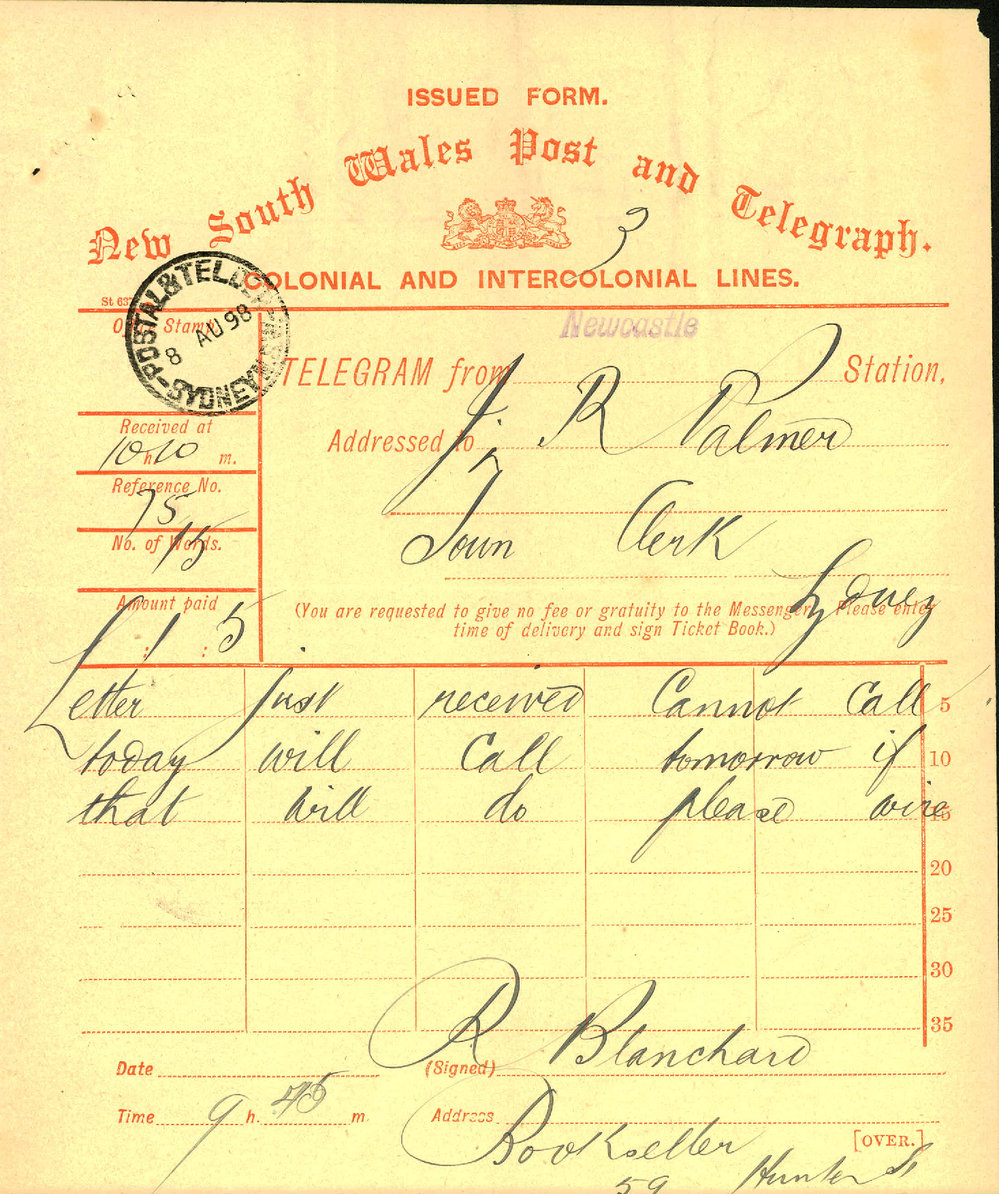 ISSUED FORM.
New South Wales Post and Telegraph.
3
COLONIAL AND INTERCOLONIAL LINES.
St 637
POSTAL & TELEGRAPH
8 AU 98
SYDNEY N.S.W
Office Stamp
Newcastle
TELEGRAM from Station,
Received at
10 h 10 m.
Addressed to J. R Palmer
Reference No.
75
Town Clerk
No. of Words.
15
Sydney
Amount paid
: 1 : 5
(You are requested to give no fee or gratuity to the Messenger. Please enter
time of delivery and sign Ticket Book.)
Letter just received Cannot Call 5
today will Call tomorrow if 10
that will do please wire 15
20
25
30
35
Date (Signed) R Blanchard
Time 9 h. 45 m. Address Bookseller
[OVER.]
59 Hunter St